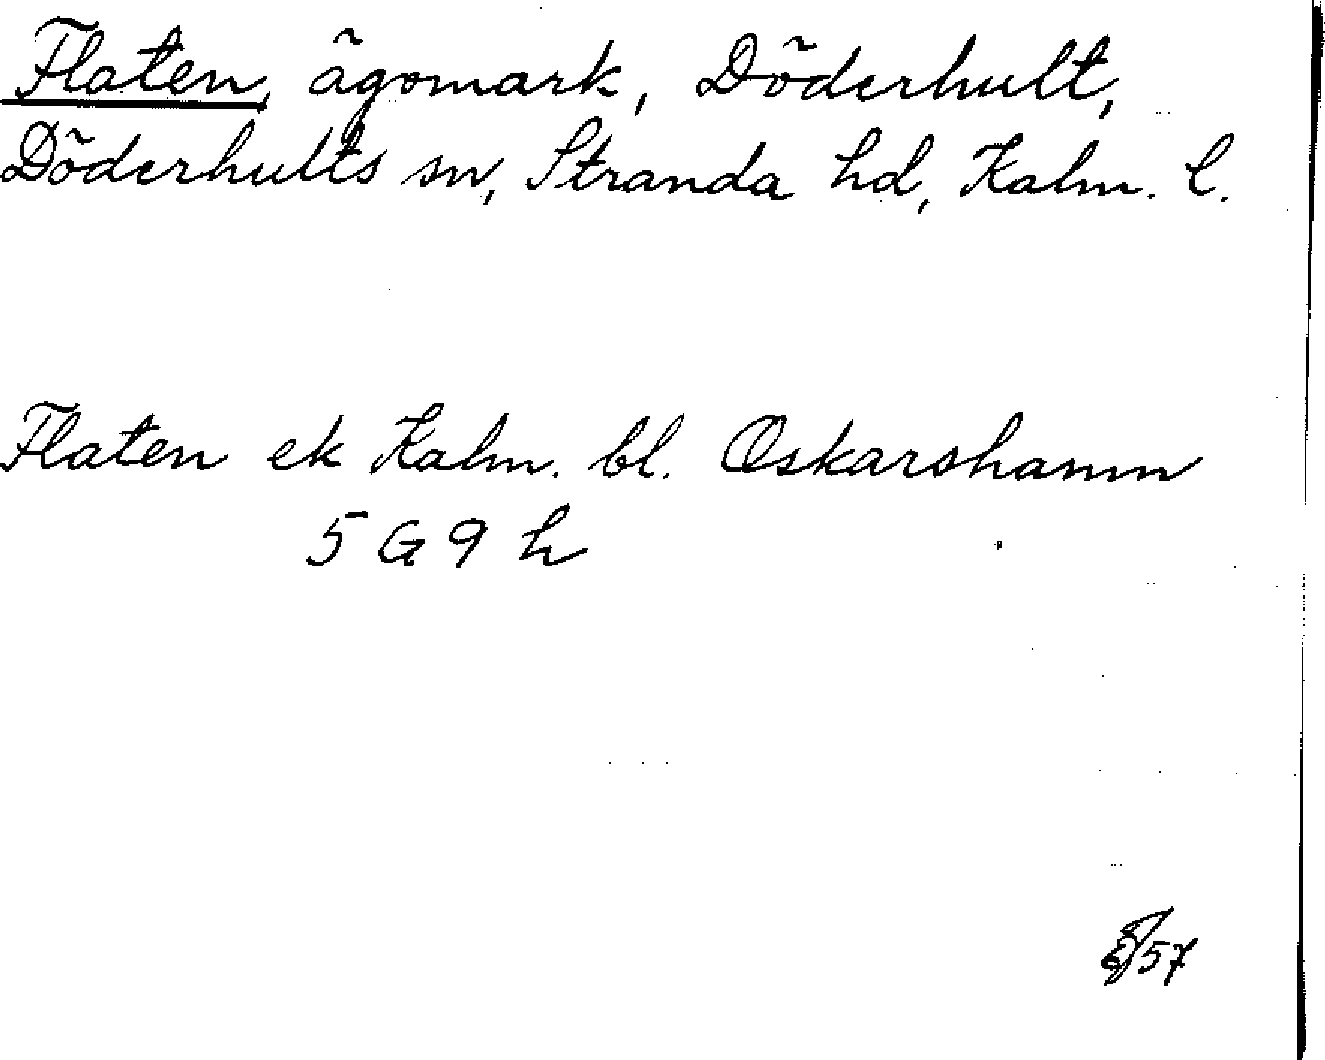 Flaten, ägomark, Döderhult,
Döderhults sn, Stranda hd, Kalm. l.
Flaten ek Kalm. bl. Oskarshamn
5 G 9 h
57